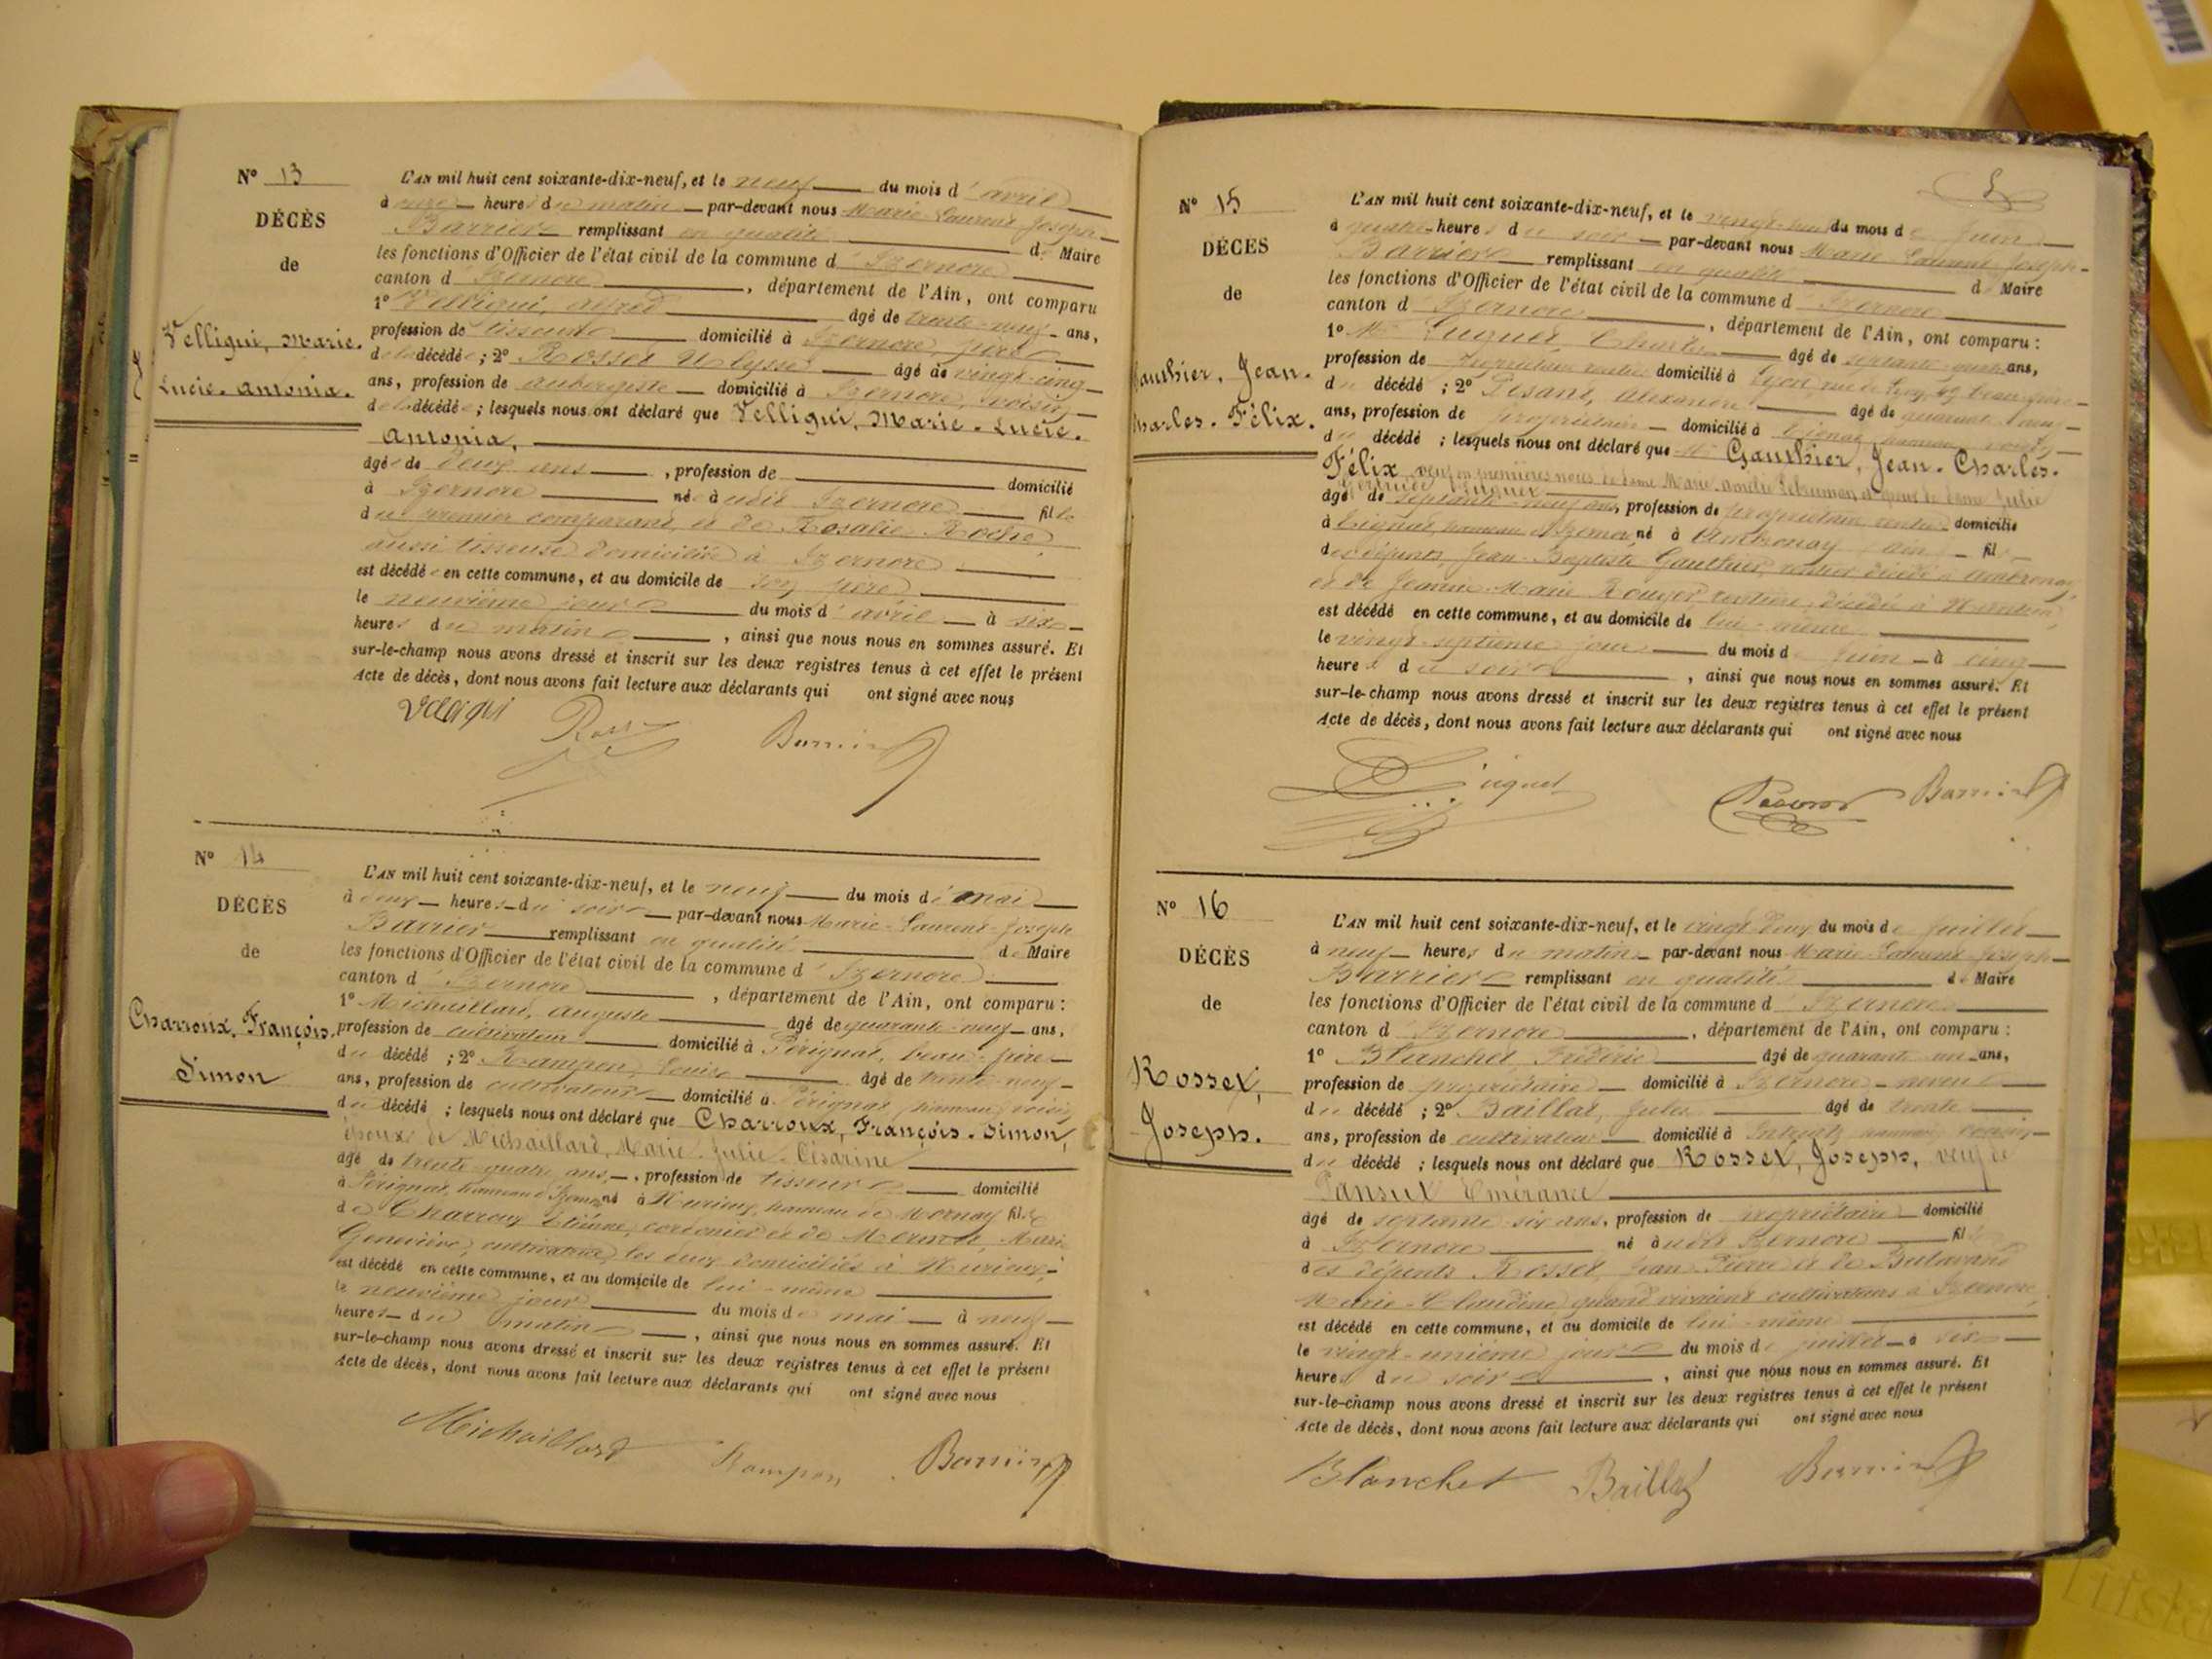 N° 13
DÉCÈS
de
Velligui, Marie.
Lucie. Antonia.
L'AN mil huit cent soixante-dix-neuf, et le neuf du mois d'avril
à onze heures du matin par-devant nous Marie Laurent Joseph
Barrier remplissant en qualité de Maire
les fonctions d'Officier de l'état civil de la commune d'Izernore
canton d'Izernore, département de l'Ain, ont comparu
1° Velligui, Alfred âgé de trente-neuf ans,
profession de tisseur domicilié à Izernore, père
de la décédée; 2° Rosset Ulysse âgé de vingt-cinq
ans, profession de aubergiste domicilié à Izernore, voisin
de la décédée; lesquels nous ont déclaré que Velligui, Marie. Lucie.
Antonia,
âgée de deux ans, profession de domicilié
à Izernore née à udit Izernore fille
du premier comparant et de Rosalie Roche
aussi tisseuse domiciliée à Izernore
est décédée en cette commune, et au domicile de son père
le neuvième jour du mois d'avril à six
heures du matin, ainsi que nous nous en sommes assuré. Et
sur-le-champ nous avons dressé et inscrit sur les deux registres tenus à cet effet le présent
Acte de décès, dont nous avons fait lecture aux déclarants qui ont signé avec nous
Velligui Rosset Barrier
N° 14
DÉCÈS
de
Charroux, François.
Simon
L'AN mil huit cent soixante-dix-neuf, et le neuf du mois de mai
à deux heures du soir par-devant nous Marie-Laurent-Joseph
Barrier remplissant en qualité de Maire
les fonctions d'Officier de l'état civil de la commune d'Izernore
canton d'Izernore, département de l'Ain, ont comparu :
1° Michaillard, Auguste âgé de quarante-neuf ans,
profession de cultivateur domicilié à Pérignat, beau-père
du décédé; 2° Rampon, Louis âgé de trente-neuf
ans, profession de cultivateur domicilié à Pérignat hameau, voisin
du décédé; lesquels nous ont déclaré que Charroux, François. Simon,
époux de Michaillard, Marie-Julie-Césarine
âgé de trente-quatre ans, profession de tisseur domicilié
à Pérignat, hameau d'Izernore né à Nurieux, hameau de Mornay fils
de Charroux Etienne, cordonnier et de
Geneviève, cultivatrice, les deux domiciliés à Nurieux,
est décédé en cette commune, et au domicile de lui-même
le neuvième jour du mois de mai à neuf
heures du matin, ainsi que nous nous en sommes assuré. Et
sur-le-champ nous avons dressé et inscrit sur les deux registres tenus à cet effet le présent
Acte de décès, dont nous avons fait lecture aux déclarants qui ont signé avec nous
Michaillard Rampon Barrier
N° 15
DÉCÈS
de
Gauthier, Jean.
Charles. Félix.
L'AN mil huit cent soixante-dix-neuf, et le du mois de juin
à quatre heures du soir par-devant nous Marie Laurent Joseph
Barrier remplissant en qualité de Maire
les fonctions d'Officier de l'état civil de la commune d'Izernore
canton d'Izernore, département de l'Ain, ont comparu :
1° Mr Luquet Charles âgé de septante ans,
profession de propriétaire rentier domicilié à Lyon, beau-frère
du décédé; 2° Pesant, Alexandre âgé de quarante
ans, profession de propriétaire domicilié à hameau, voisin
du décédé; lesquels nous ont déclaré que Mr Gauthier, Jean. Charles.
Félix veuf en premières noces de dame Marie Amélie et époux de dame Julie
Luquet
âgé de septante-neuf ans, profession de propriétaire rentier domicilié
à hameau d'Izernore né à Ambronay Ain fils
des défunts Jean-Baptiste Gauthier, rentier décédé à Ambronay
et de Jeanne-Marie rentière, décédée à
est décédé en cette commune, et au domicile de lui-même
le vingt-septième jour du mois de juin à cinq
heures du soir, ainsi que nous nous en sommes assuré. Et
sur-le-champ nous avons dressé et inscrit sur les deux registres tenus à cet effet le présent
Acte de décès, dont nous avons fait lecture aux déclarants qui ont signé avec nous
Luquet Pesant Barrier
N° 16
DÉCÈS
de
Rosset,
Joseph.
L'AN mil huit cent soixante-dix-neuf, et le vingt-deux du mois de juillet
à neuf heures du matin par-devant nous Marie Laurent Joseph
Barrier remplissant en qualité de Maire
les fonctions d'Officier de l'état civil de la commune d'Izernore
canton d'Izernore, département de l'Ain, ont comparu :
1° Blanchet, Frédéric âgé de quarante-un ans,
profession de propriétaire domicilié à Izernore neveu
du décédé; 2° Baillat, Jules âgé de trente
ans, profession de cultivateur domicilié à hameau voisin
du décédé; lesquels nous ont déclaré que Rosset, Joseph, veuf de
Pansut Emérance
âgé de septante-six ans, profession de propriétaire domicilié
à Izernore né à udit Izernore fils
des défunts Rosset, Jean Pierre et de
Marie-Claudine quand vivaient cultivateurs à Izernore,
est décédé en cette commune, et au domicile de lui-même
le vingt-unième jour du mois de juillet à six
heures du soir, ainsi que nous nous en sommes assuré. Et
sur-le-champ nous avons dressé et inscrit sur les deux registres tenus à cet effet le présent
Acte de décès, dont nous avons fait lecture aux déclarants qui ont signé avec nous
Blanchet Baillat Barrier